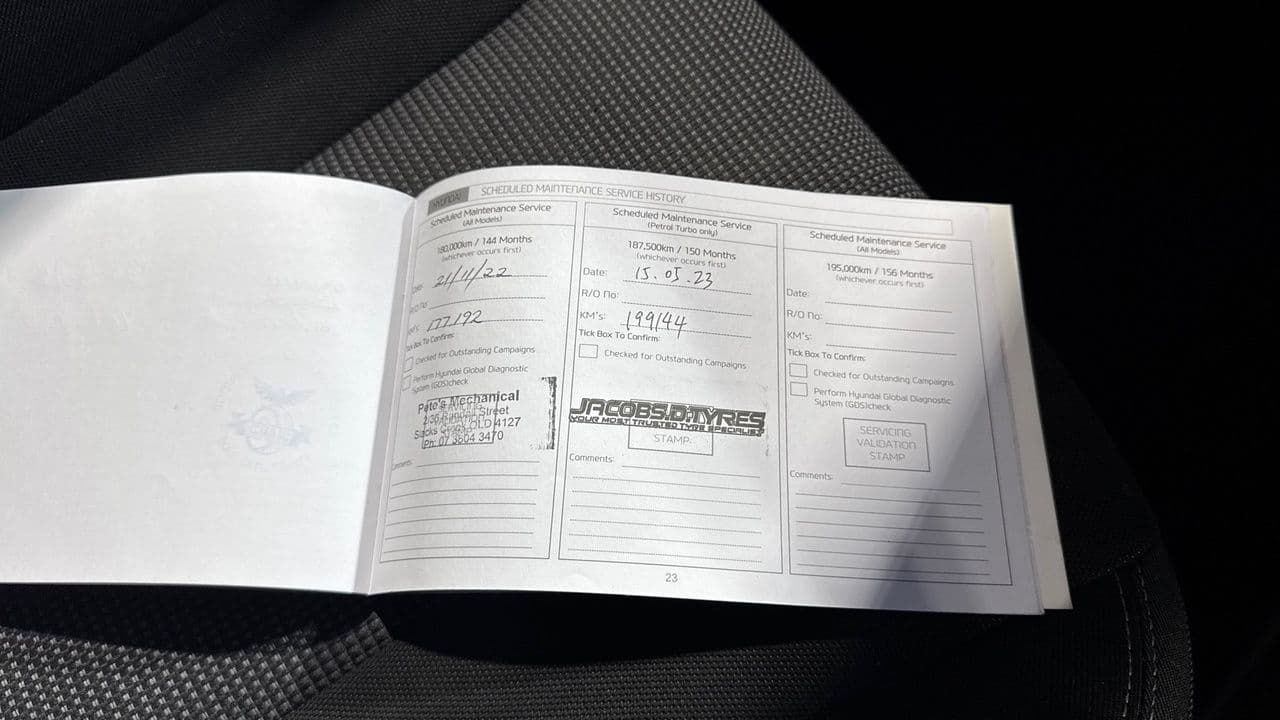 HYUNDAI SCHEDULED MAINTENANCE SERVICE HISTORY
Scheduled Maintenance Service
(All Models)
180,000km / 144 Months
(whichever occurs first)
Date: 21/11/22
R/O No:
KM's: 177192
Tick Box To Confirm:
Checked for Outstanding Campaigns
Perform Hyundai Global Diagnostic
System (GDS)check
Pete's Mechanical
Street
QLD 4127
Ph: 07 3804 3470
Comments:
Scheduled Maintenance Service
(Petrol Turbo only)
187,500km / 150 Months
(whichever occurs first)
Date: 15.05.23
R/O No:
KM's: 199144
Tick Box To Confirm:
Checked for Outstanding Campaigns
JACOBS.D.TYRES
YOUR MOST TRUSTED TYRE SPECIALIST
STAMP
Comments:
Scheduled Maintenance Service
(All Models)
195,000km / 156 Months
(whichever occurs first)
Date:
R/O No:
KM's:
Tick Box To Confirm:
Checked for Outstanding Campaigns
Perform Hyundai Global Diagnostic
System (GDS)check
SERVICING
VALIDATION
STAMP
Comments:
23